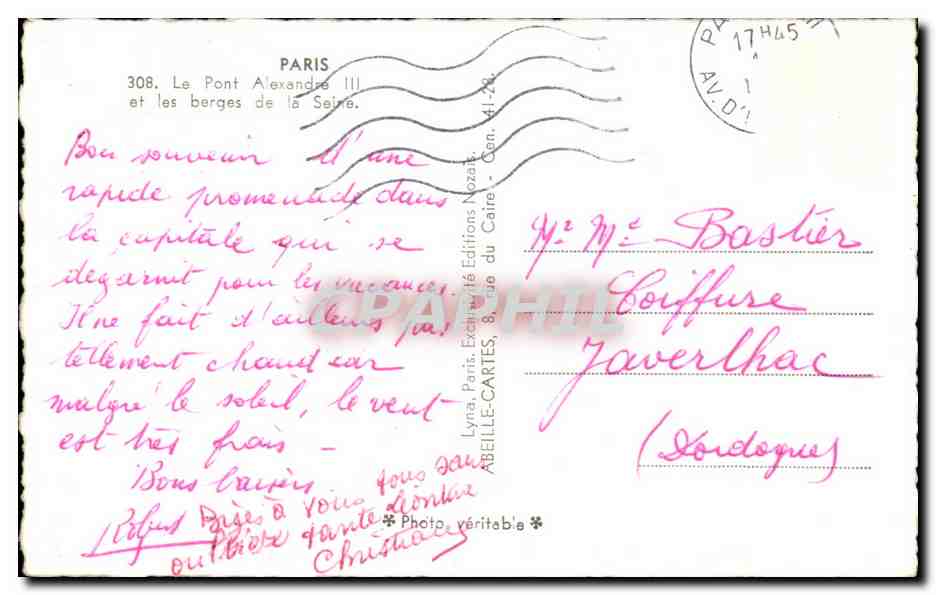 PARIS
308. Le Pont Alexandre III
et les berges de la Seine.
17H45
1
AV. D'
Bon souvenir d'une
rapide promenade dans
la capitale qui se
dégarnit pour les vacances.
Il ne fait d'ailleurs pas
tellement chaud car
malgré le soleil, le vent
est très frais –
Bons baisers
Robert
à vous tous sans
oublier tante Léontine
Christiane
Lyna, Paris. Exclusivité Editions Nozais.
ABEILLE-CARTES, 8, rue du Caire - Cen. 41-28.
Mr Me Bastier
Coiffure
Javerlhac
(Dordogne)
* Photo véritable *
©PAPHIL